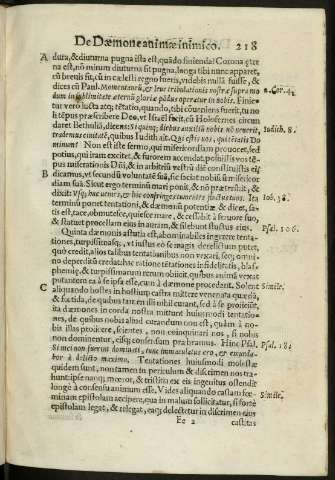 De Dæmone animæ inimico. 218
A dura, & diuturna pugna ista est, quãdo finienda? Corona æter
na est, nõ mirum diuturna sit pugna, longa tibi nunc apparet,
cũ breuis sit, cũ in cælesti regno fueris, videbis nullã fuisse, &
dices cũ Paul. Momentaneũ, & leue tribulationis nostræ supra mo
dum in sublimitate æternũ gloriæ põdus operatur in nobis. Finie-
2. Cor. 4.
tur vero lucta atq; tẽtatio, quando, tibi cõueniens fuerit, tu no
li tẽpus præscribere Deo, vt Israel fecit, cũ Holofernes circum
daret Bethuliã, dicens: Si quinq; diebus auxiliũ nobis nõ venerit,
Iudith. 8.
trademus ciuitatẽ, quibus Iudith ait. Qui estis vos, qui tẽtatis Do
minum? Non est iste sermo, qui misericordiam prouocet, sed
potius, qui iram excitet, & furorem accendat, posuistis vos tẽ-
pus miserationis Dñi, & in arbitriũ vestrũ diẽ constituistis ei?
B dicamus, vt secundũ voluntatẽ suã, sic faciat nobis misericor
diam suã. Sicut ergo terminũ mari ponit, & nõ prætreunt, &
dixit Vsq; huc venies, & hic confringes tumentes fluctus tuos. Ita
Iob. 38.
terminũ ponet tentationi, & dæmonũ potentiæ & dicet, sa-
tis est, tace, obmutesce, quiescet mare, & cessabit à feruore suo,
& statuet procellam eius in auram, & silebunt fluctus eius.
Psal. 106.
Quinta dæmonis astutia est, abominabiles ingerere tenta-
tiones, turpissimasq;, vt iustus eo se magis derelictum putet,
quò credit, alios talibus tentationibus non vexari, seq; omni-
no deperditũ credat, hac ratione tẽtationes infidelitatis, blas-
phemiæ, & turpissimarum rerum obiicit, quibus animã vexat
putantem ea à se ipsa esse, cum à dæmone procedant. Solent
Simile.
C aliquando hostes in hostium castra mittere venenata quædã,
& fœtida, de quibus tamen illi nihil curant, sed à se proiiciũt,
ita dæmones in corda nostra mittunt huiusmodi tentatio-
nes, de quibus nobis aliud curandum non est, quàm à no-
bis illas proiicere, scientes, non coinquinari nos, si nobis
non dominentur, eisq; consensum præbeamus. Hinc Psal.
Psal. 18.
Si mei non fuerint dominati, tunc immaculatus ero, & emunda-
bor à delicto maximo. Tentationes huiusmodi molestæ
quidem sunt, non tamen in periculum & discrimen nos tra
hunt: ipse namq; mœror, & tristitia ex eis ingenitus ostendit
longè à consensu animum esse. Vides aliquando castam fœ-
Simile.
minam epistolam accipere, qua in malum sollicitatur, si fortè
epistolam legat, & relegat, eaq; delectetur in discrimen eius
Ee 2 castitas